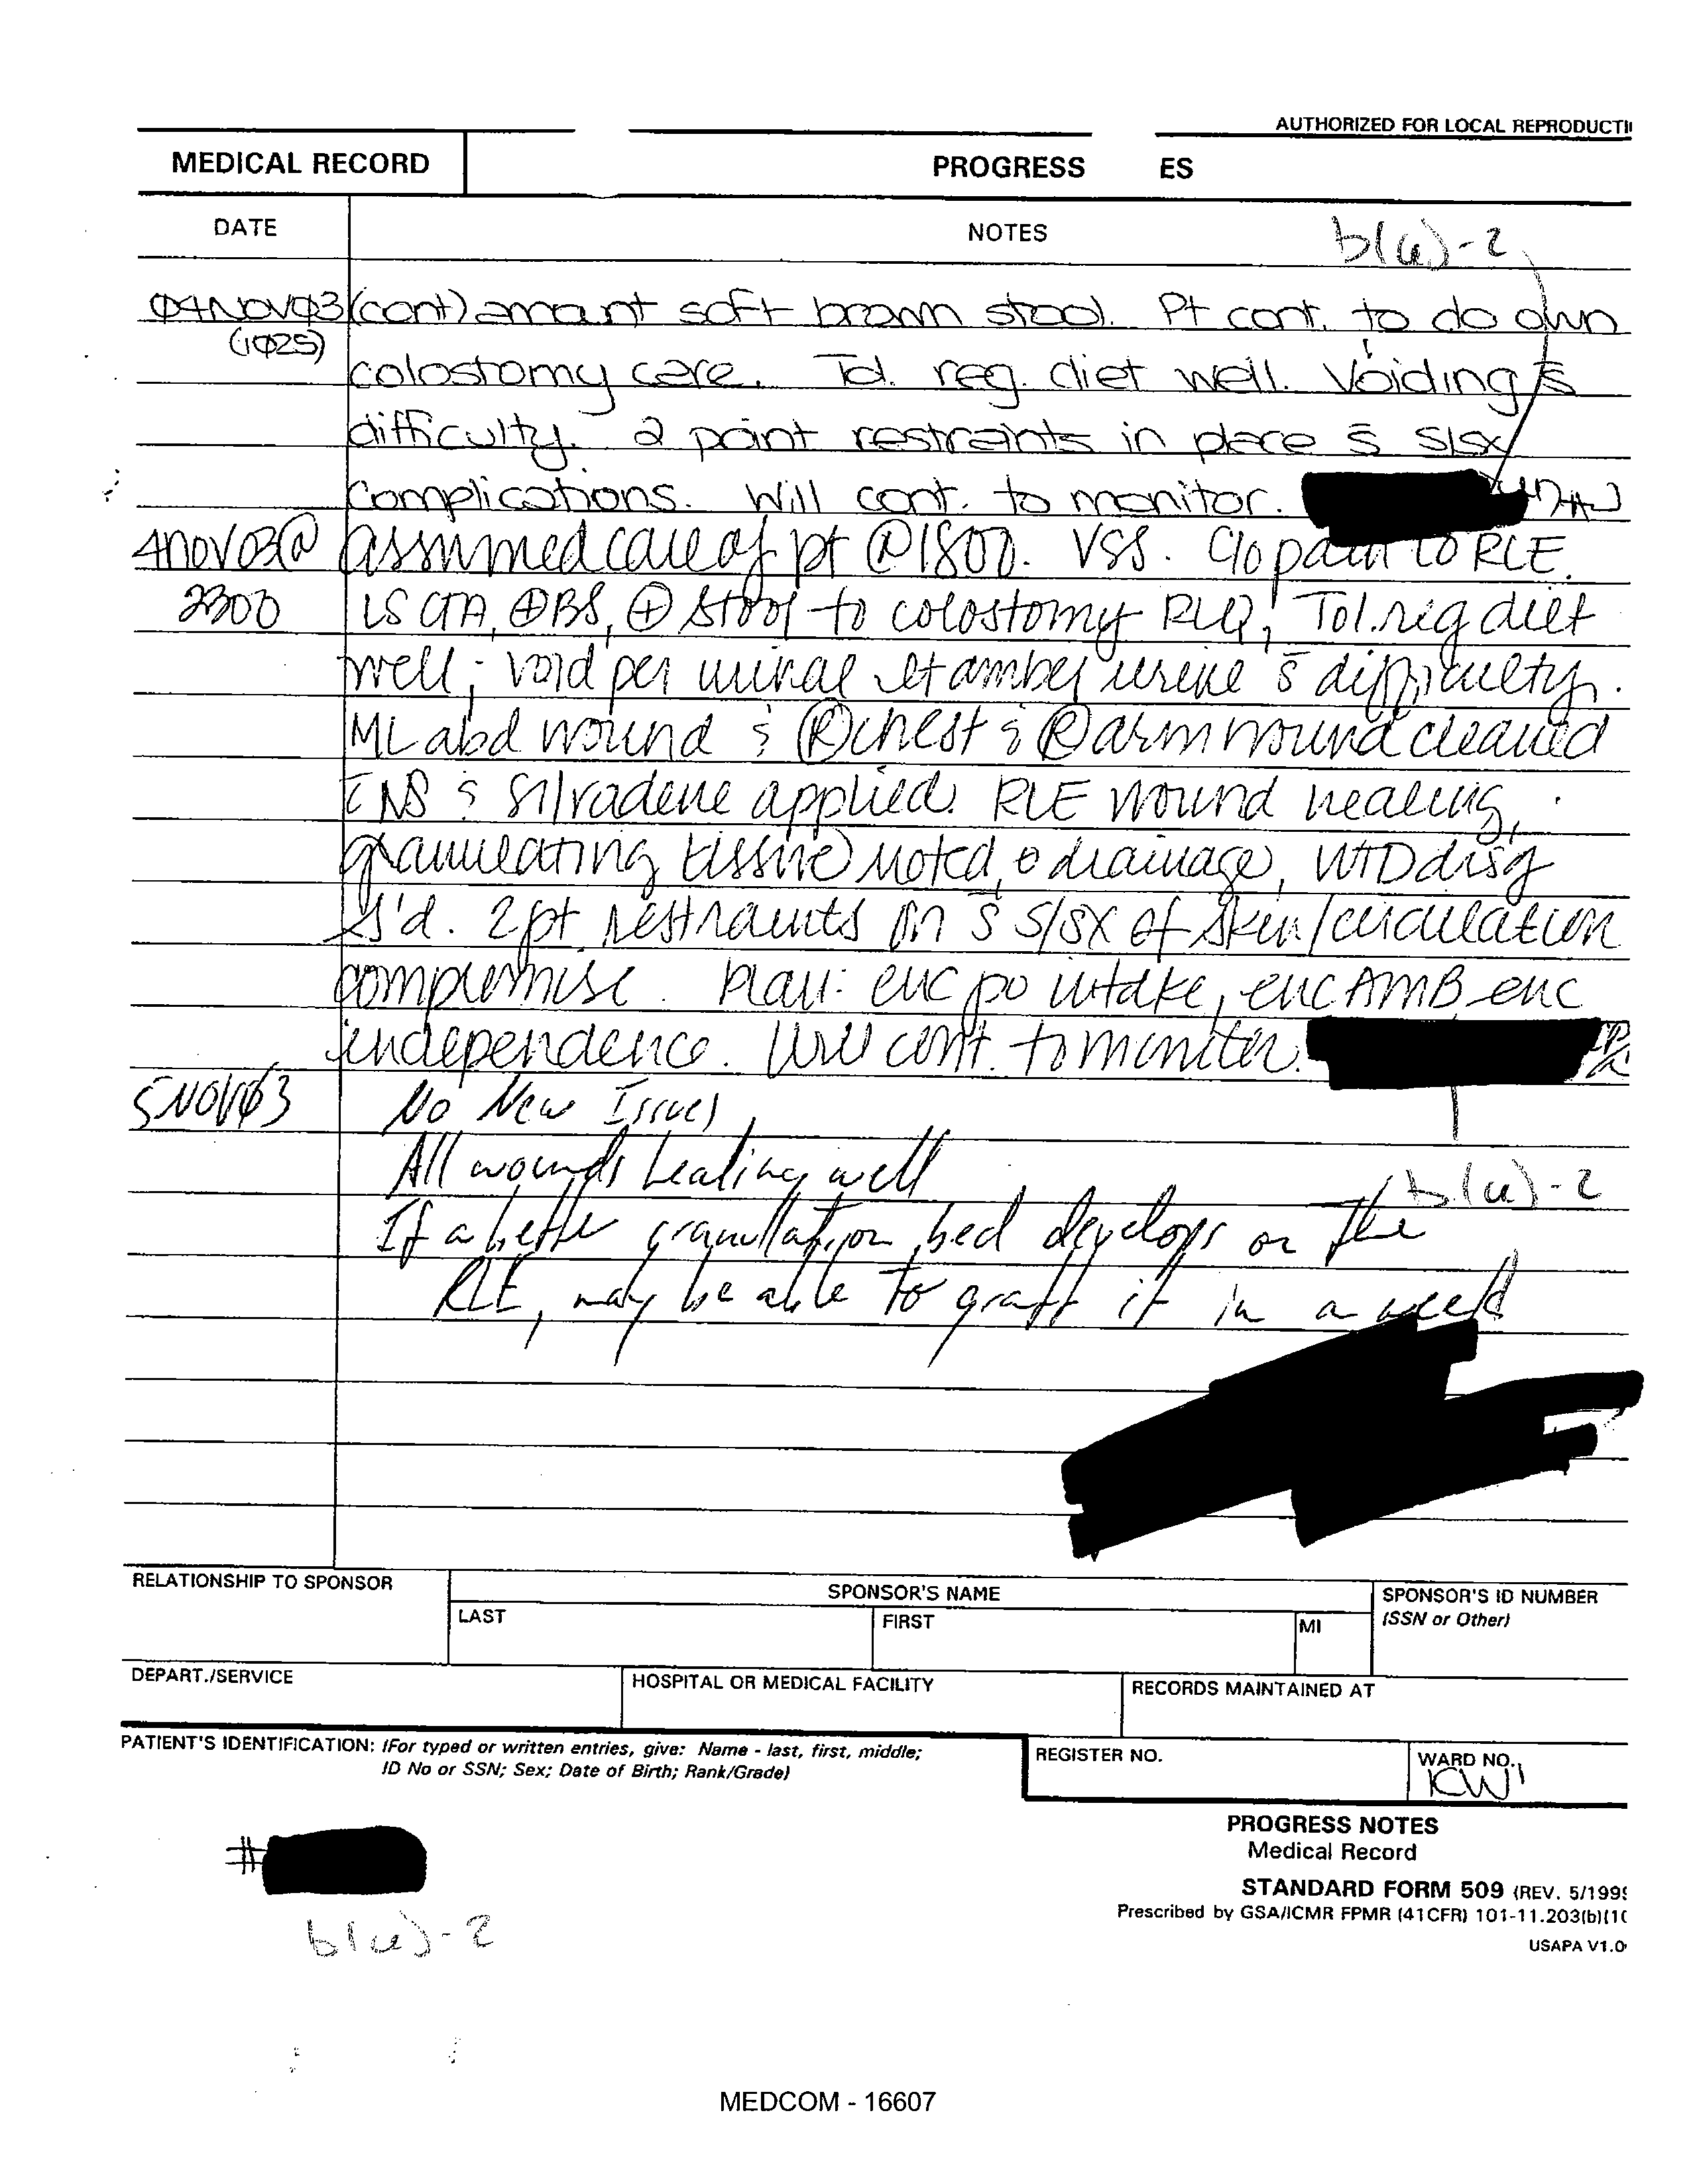 AUTHORIZED FOR LOCAL REPRODUCTI
MEDICAL RECORD
PROGRESS ES
DATE
NOTES
b(6)-2
04NOV03 (cont) amount soft brown stool. Pt cont. to do own
(1025)
colostomy care. Tol. reg. diet well. Voiding s̄
difficulty. 2 point restraints in place s̄ S/Sx
complications. Will cont. to monitor.
4NOV03@ assumed care of pt @1800. VSS. c/o pain to RLE.
2300 LS CTA, ⊕BS, ⊕ stool to colostomy RLQ, Tol. reg diet
well; void per urinal amber urine s̄ difficulty.
ML abd wound & Ⓡ chest & Ⓡ arm wound cleaned
c̄ NS & Silvadene applied. RLE wound healing,
granulating tissue noted, drainage, WTD dsg
2 pt restraints on s̄ s/sx of skin/circulation
compromise. Plan: enc po intake, enc AMB, enc
independence. Will cont. to monitor.
5NOV03 No New Issues
All wounds healing well
b(6)-2
If a better granullation bed develops on the
RLE, may be able to graft it in a week
RELATIONSHIP TO SPONSOR
SPONSOR'S NAME
SPONSOR'S ID NUMBER
(SSN or Other)
LAST
FIRST
MI
DEPART./SERVICE
HOSPITAL OR MEDICAL FACILITY
RECORDS MAINTAINED AT
PATIENT'S IDENTIFICATION: (For typed or written entries, give: Name - last, first, middle;
ID No or SSN; Sex; Date of Birth; Rank/Grade)
REGISTER NO.
WARD NO.
ICW1
#
b(6)-2
PROGRESS NOTES
Medical Record
STANDARD FORM 509 (REV. 5/199
Prescribed by GSA/ICMR FPMR (41CFR) 101-11.203(b)(1
USAPA V1.0
MEDCOM - 16607